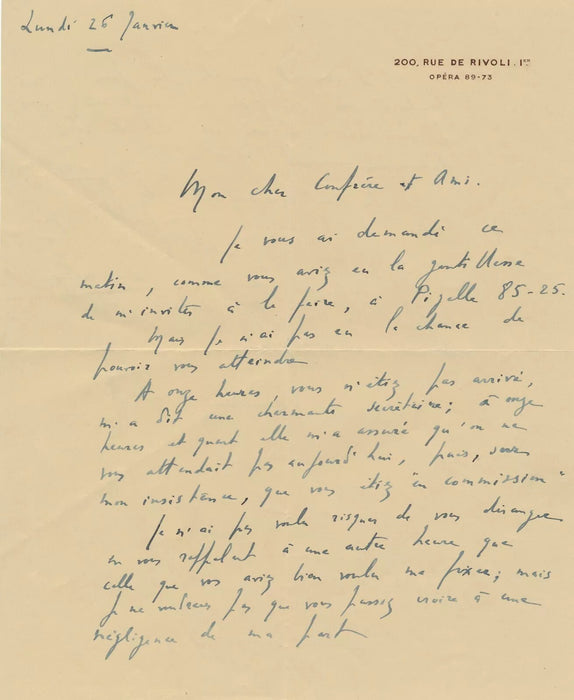 Lundi 26 Janvier
200, RUE DE RIVOLI. 1ER
OPÉRA 89-73
Mon cher Confrère et Ami.
Je vous ai demandé ce
matin, comme vous aviez eu la gentillesse
de m'inviter à le faire, à Pigalle 85-25.
Mais je n'ai pas eu la chance de
pouvoir vous atteindre
A onze heures, vous n'étiez pas arrivé,
m'a dit une charmante secrétaire; à onze
heures et quart elle m'a assuré qu'on ne
vous attendait pas aujourd'hui, puis, sous
mon insistance, que vous étiez "en commission"
Je n'ai pas voulu risquer de vous déranger
en vous rappelant à une autre heure que
celle que vous aviez bien voulu me fixer; mais
je ne voudrais pas que vous puissiez croire à une
négligence de ma part